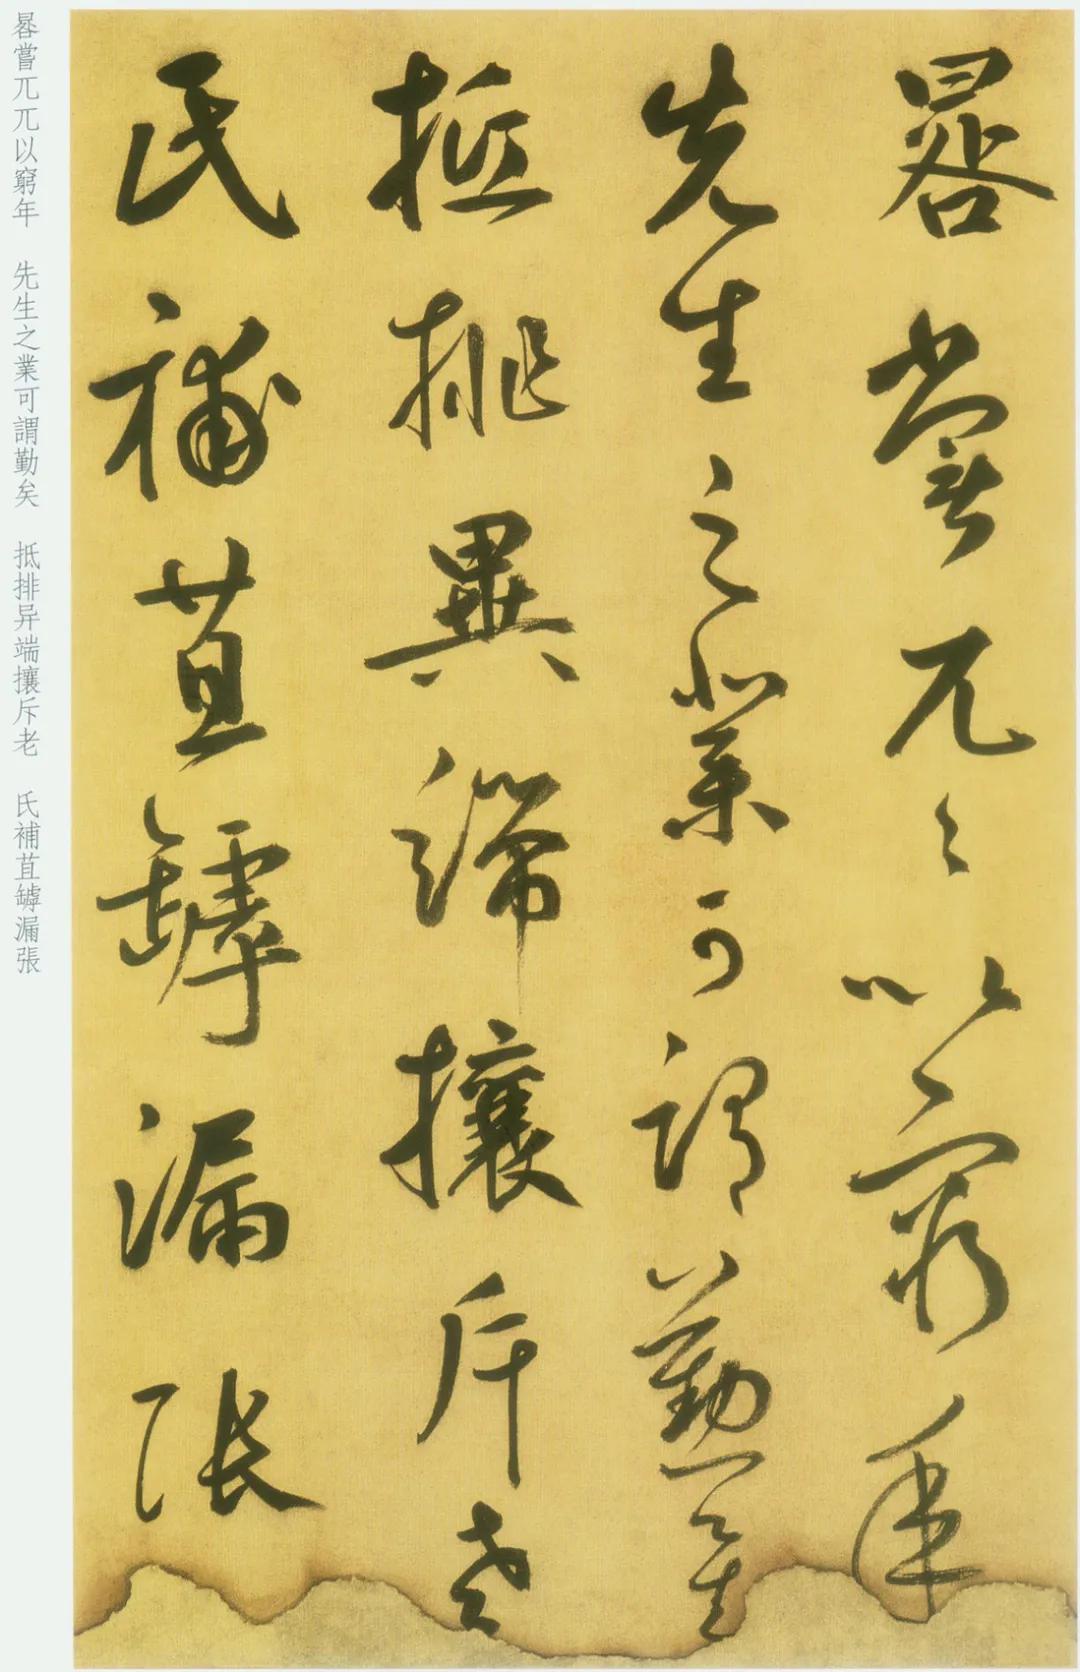 晷嘗兀〻以窮年
先生之業可謂勤矣
抵排異端攘斥老
氏補苴罅漏張
晷嘗兀兀以窮年 先生之業可謂勤矣 抵排异端攘斥老 氏補苴罅漏張